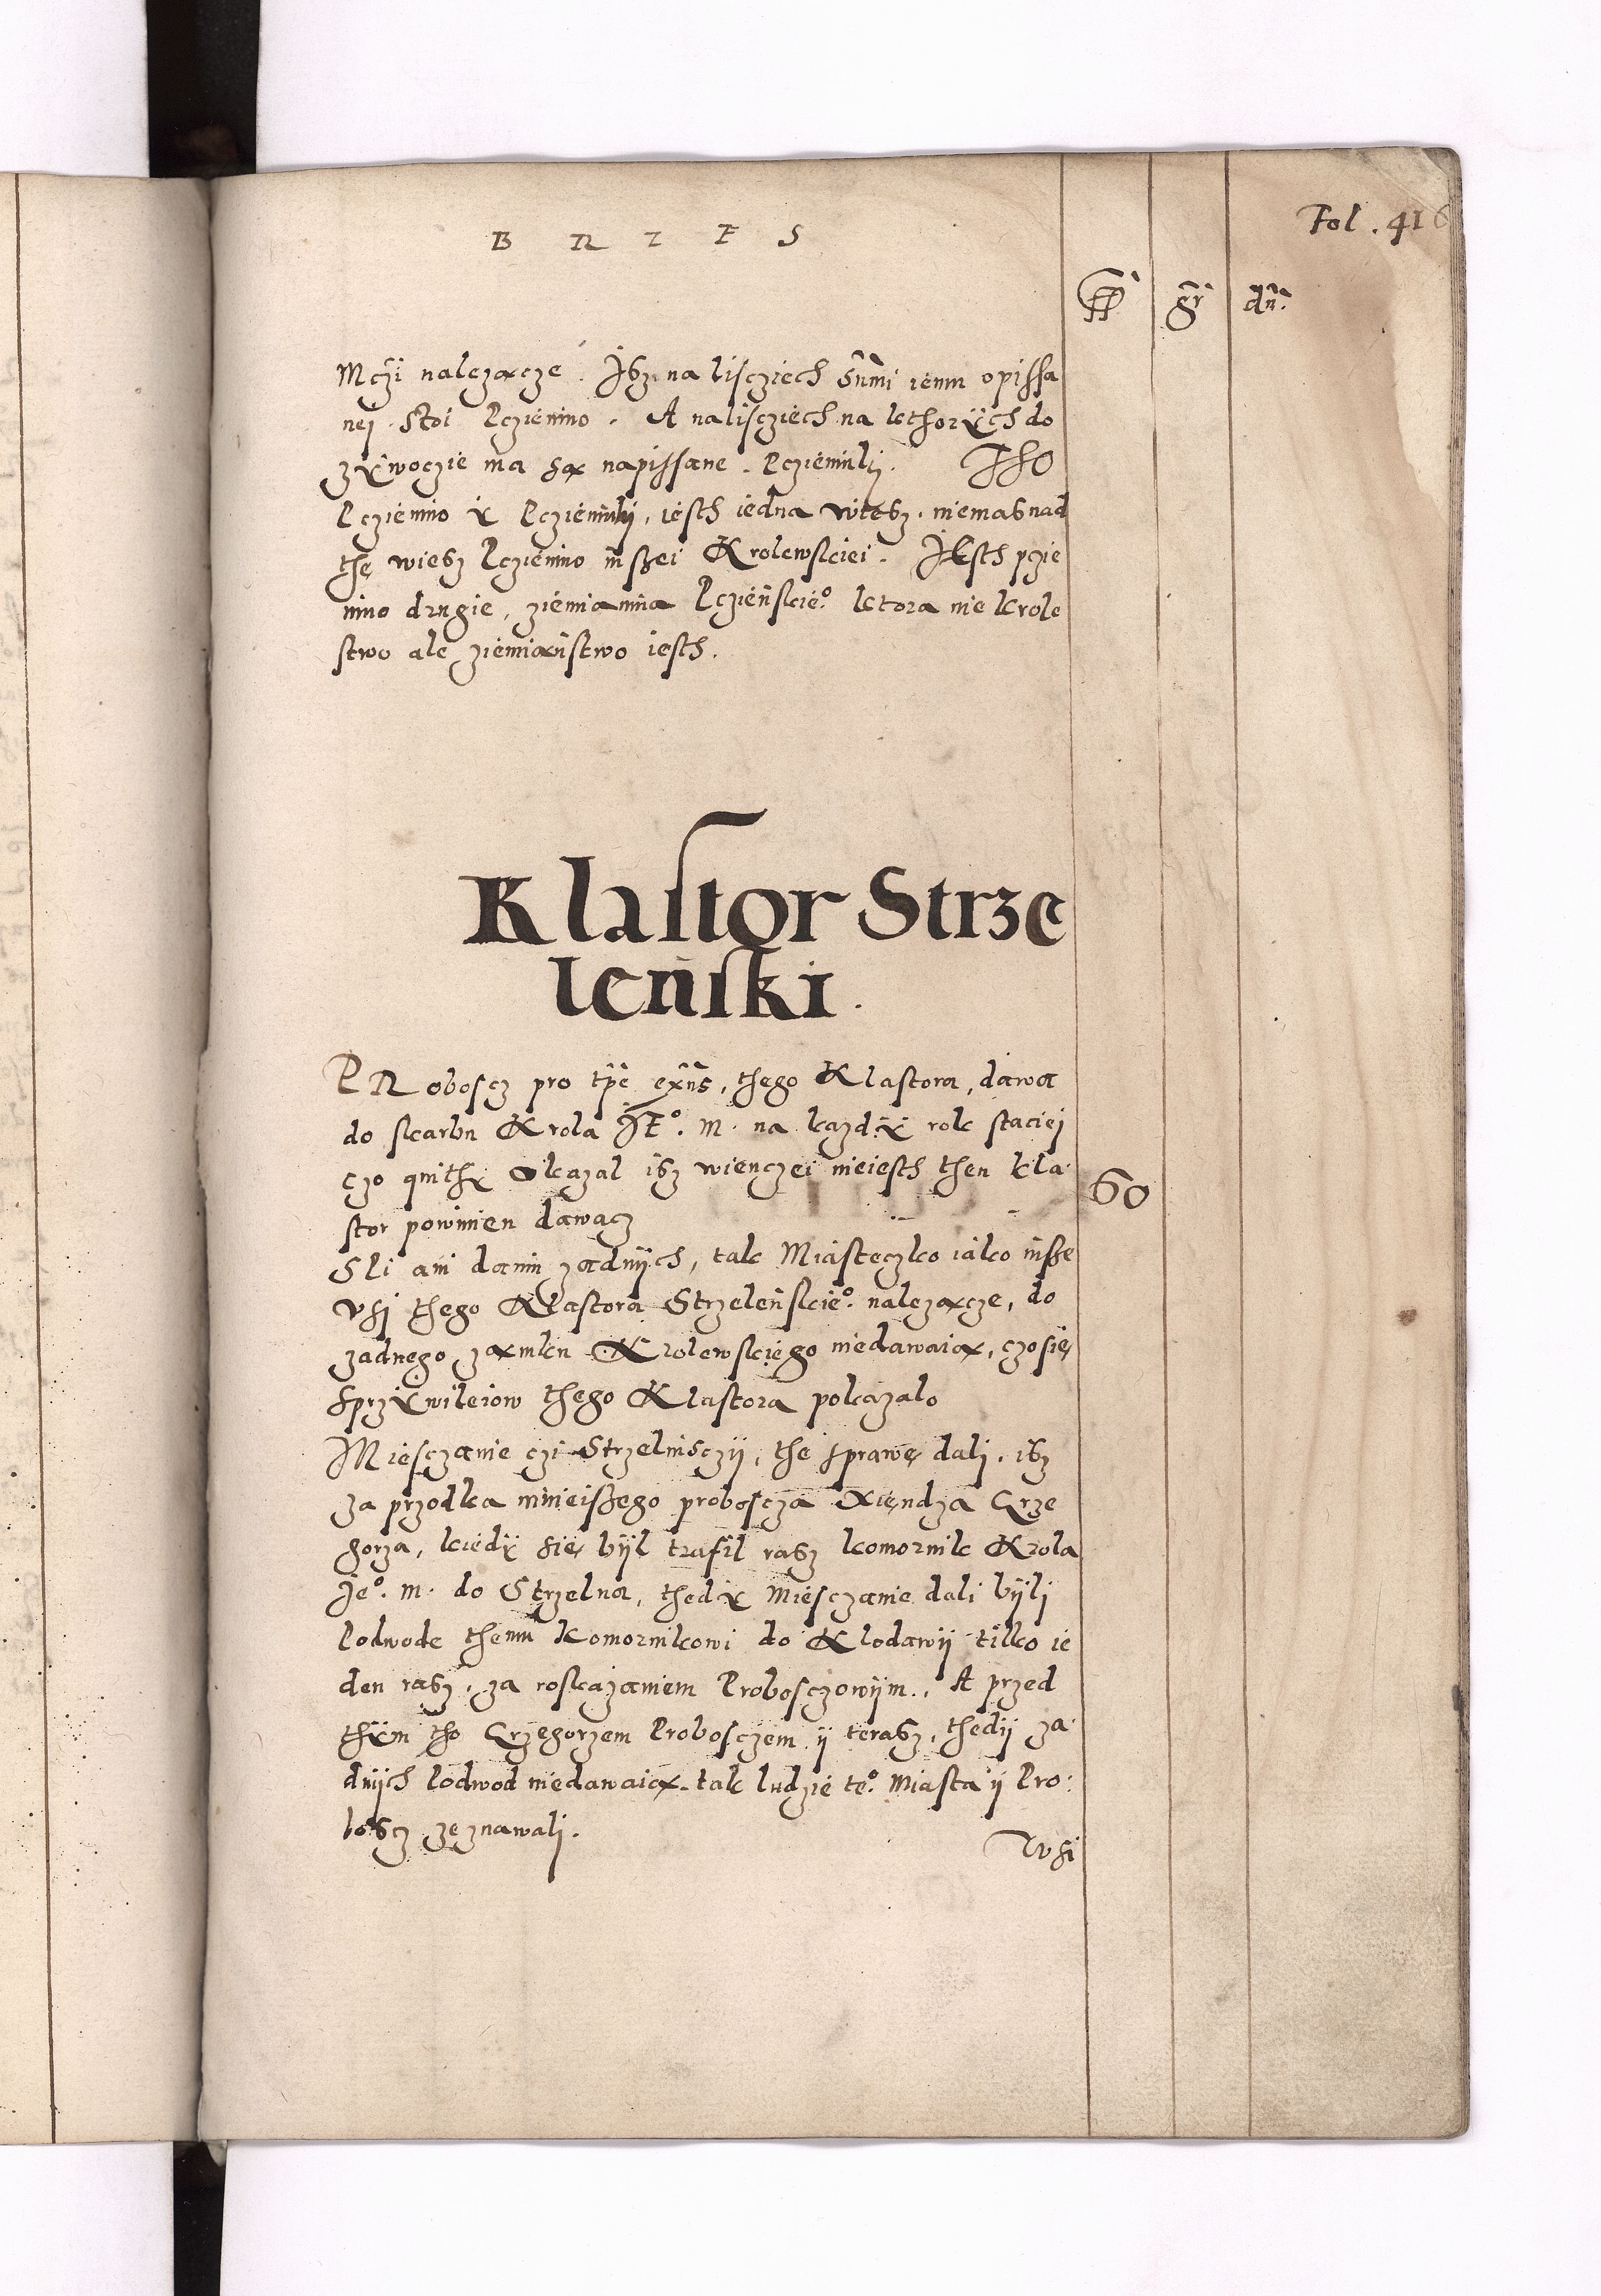 B R Z E S
Fol. 416
ff gr dn.
Mczi nalezącze. Isz na lisciech sumi iemu opissa
nej. Stoi Pczienino. A na lisciech na kthorych do
zywoczie ma są napissane. Pczieninki. Tho
Pczienino y Pczieninkij, iesth iedna wiesz, niemasnad
thę wiesz Pczienino inszei Krolewskiei. Jesth pczie
nino drugie, ziemianina Pczienskie°. ktora nie krole
stwo ale ziemiaństwo iesth.
Klastor Strze
leński.
PRoboscz pro tpe exns, thego Klastora, dawa
do skarbu Krola JE°. m. na kazdy rok staciej
czo quithy okazal isz wienczei nieiesth then kla
stor powinien dawacz
60
Sli ani danin zadnijch, tak Miasteczko iako insze
vsj thego Klastora Strzeleńskie°. nalezącze, do
zadnego zamku Krolewskiego niedawaią, czosię
sprzywileiow thego Klastora pokazalo
Miesczanie czi Strzelinsczij, the sprawę dalj, isz
za przodka mnieiszego proboscza Xiendza Grze
gorza, kiedy się bijl trafil rasz komornik Krola
Je°. m. do Strzelna, thedy Miesczanie dali bijlj
Podwode themu Komornikowi do Klodawij tilko ie
den rasz, za roskazaniem Probosczowijm., A przed
thym tho Grzegorzem Probosczem ij terasz, thedij za
dnijch Podwod niedawaią. tak ludzie te°. Miasta ij Pro:
boscz zeznawalj.
Wsi